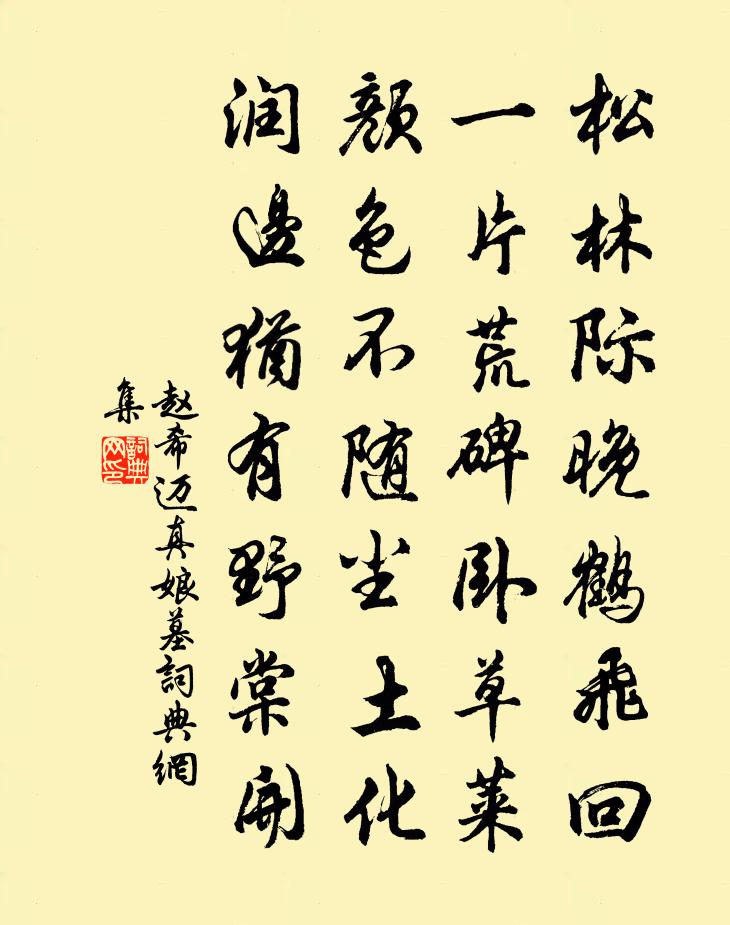 松林际晚鹤飞回
一片荒碑卧草莱
颜色不随尘土化
润邊猶有野棠開
赵希迈真娘墓詞典網
集
詞典網印